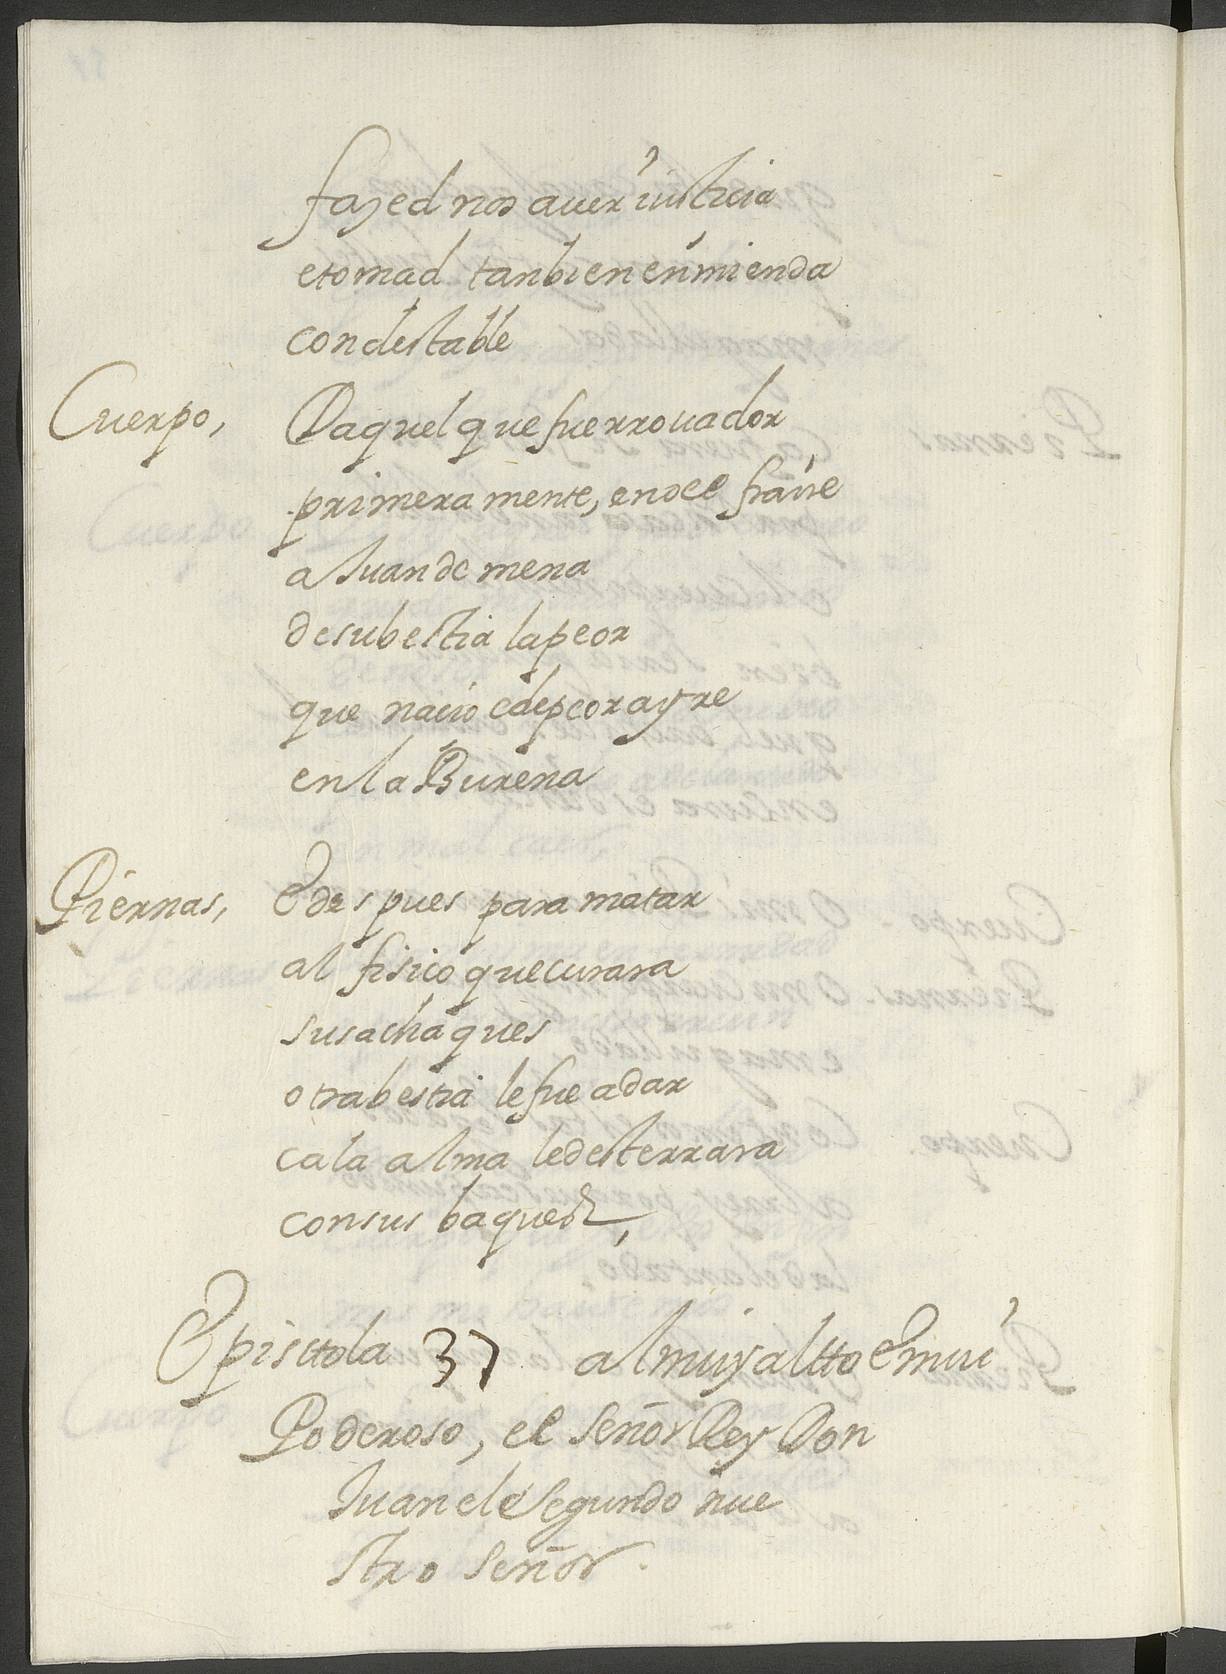 fazed nos auer iusticia
etomad tanbien enmienda
condestable
Cuerpo, Daquel que fue rrouador
primera mente, en oce fraire
a Iuan de mena
desubestia lapeor
que nacio edepeor ayre
en la Burena
Piernas, E des pues para matar
al fisico que curara
susachaques
otra bestia le fue adar
ca la alma ledesterrara
consus baques,
Episttola 37 al muy altto E mui
Poderoso, el Señor Rey Don
Iuan el Segundo nue
stro Señor.